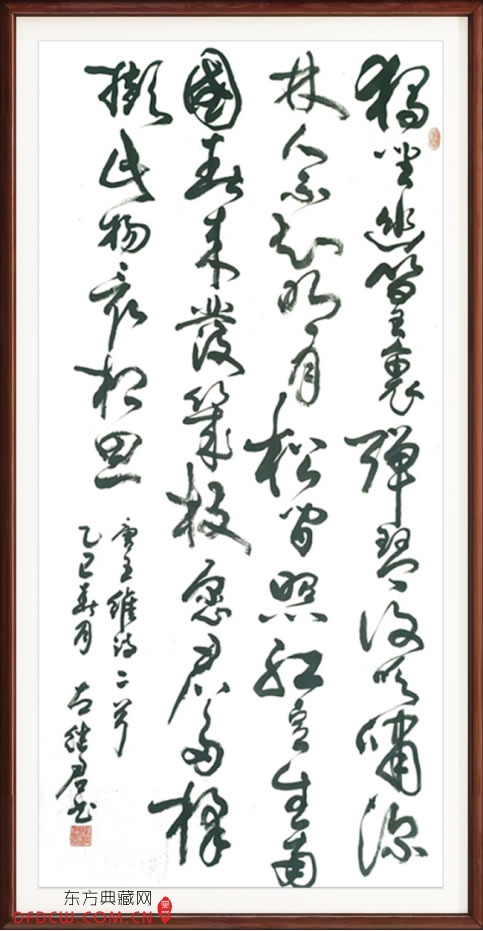 獨坐幽篁裏彈琴復長嘯深
林人不知明月松間照紅豆生南
國春來發幾枝願君多採
擷此物最相思
唐王維詩二首
乙巳 月 继君书
东方典藏网
DFDCW.COM.CN